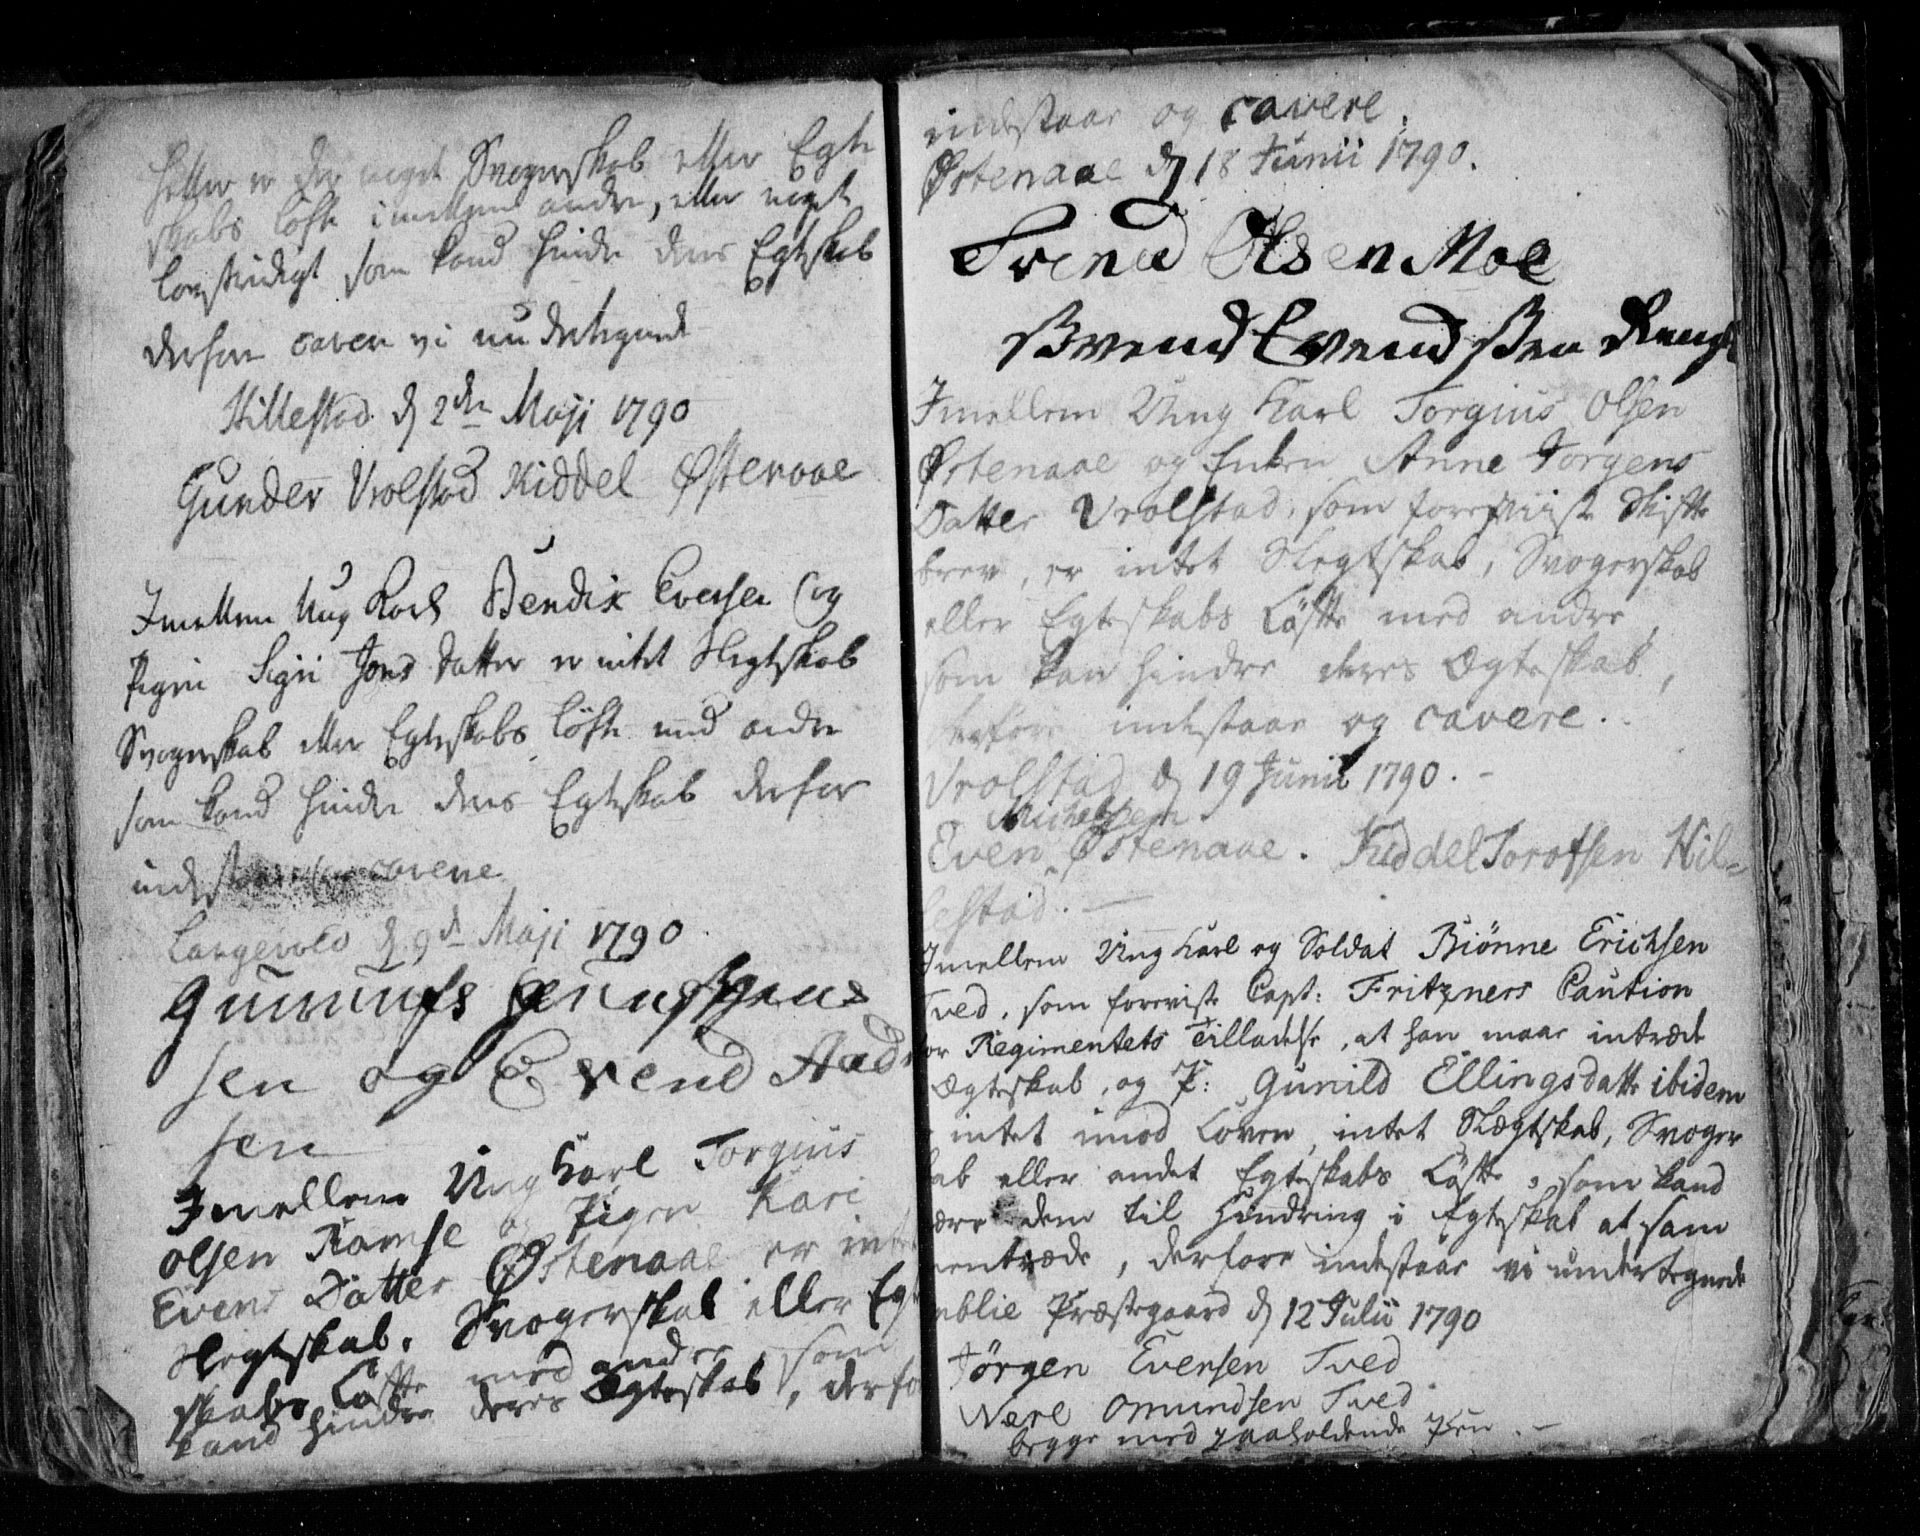 heller er der noget Svogerskab eller Egte
skabs löfte imellem andre, eller noget
lovstridigt som kand hindre deres Egteskab
derfore cavere vi undertegnede
Hillestad d 2den Maji 1790
Gunder Vrolstad Kiddel Østenaae
Imellem Ung Karl Bendix Evensen og
Pigen Sigri Jons Datter er intet Slegtskab
Svogerskab eller Egteskabs löfte med andre
som kand hindre deres Egteskab derfor
indestaar og cavere
Langevold d 9de Maji 1790.
sen og Evend
sen
Imellem Ung Karl Torgius
olsen Ramse og Pigen Kari
Evens Datter Østenaae er intet
Slegtskab, Svogerskab eller Egte
skabs Löfte med andre, som
kand hindre deres Ægteskab, derfo
indestaar og cavere.
Østenaae d 18 Junii 1790.
Svend Olsen Moe
Svend Evendssen
Imellem Ung Karl Torgius Olsen
Østenaae og Enken Anne Jorgens
Datter Vrolstad, som foreviiste Skifte
brev, er intet Slegtskab, Svogerskab
eller Egteskabs Löfte med andre,
som kan hindre deres Ægteskab,
derfore indestaar og cavere.
Vrolstad d 19 Junii 1790.-
Michelsen
Even Østenaae. Kiddel Torofsen Hil=
lestad.-
Imellem Ung Karl og Soldat Biönne Erichsen
Tved, som foreviste Capt: Fritzners Caution
for Regimentets Tilladelse, at han maae intræde
Ægteskab, og P: Gunild Ellingsdatter ibidem
intet imod Loven, intet Slægtskab, Svoger
skab eller andet Egteskabs Löfte, som kand
være dem til Hindring i Egteskab at sam
mentræde, derfore indestaar vi undertegnede
Emblie Præstegaard d 12 Julii 1790
Jörgen Evensen Tved
Nere Omundsen Tved
begge med paaholdende Pen.-